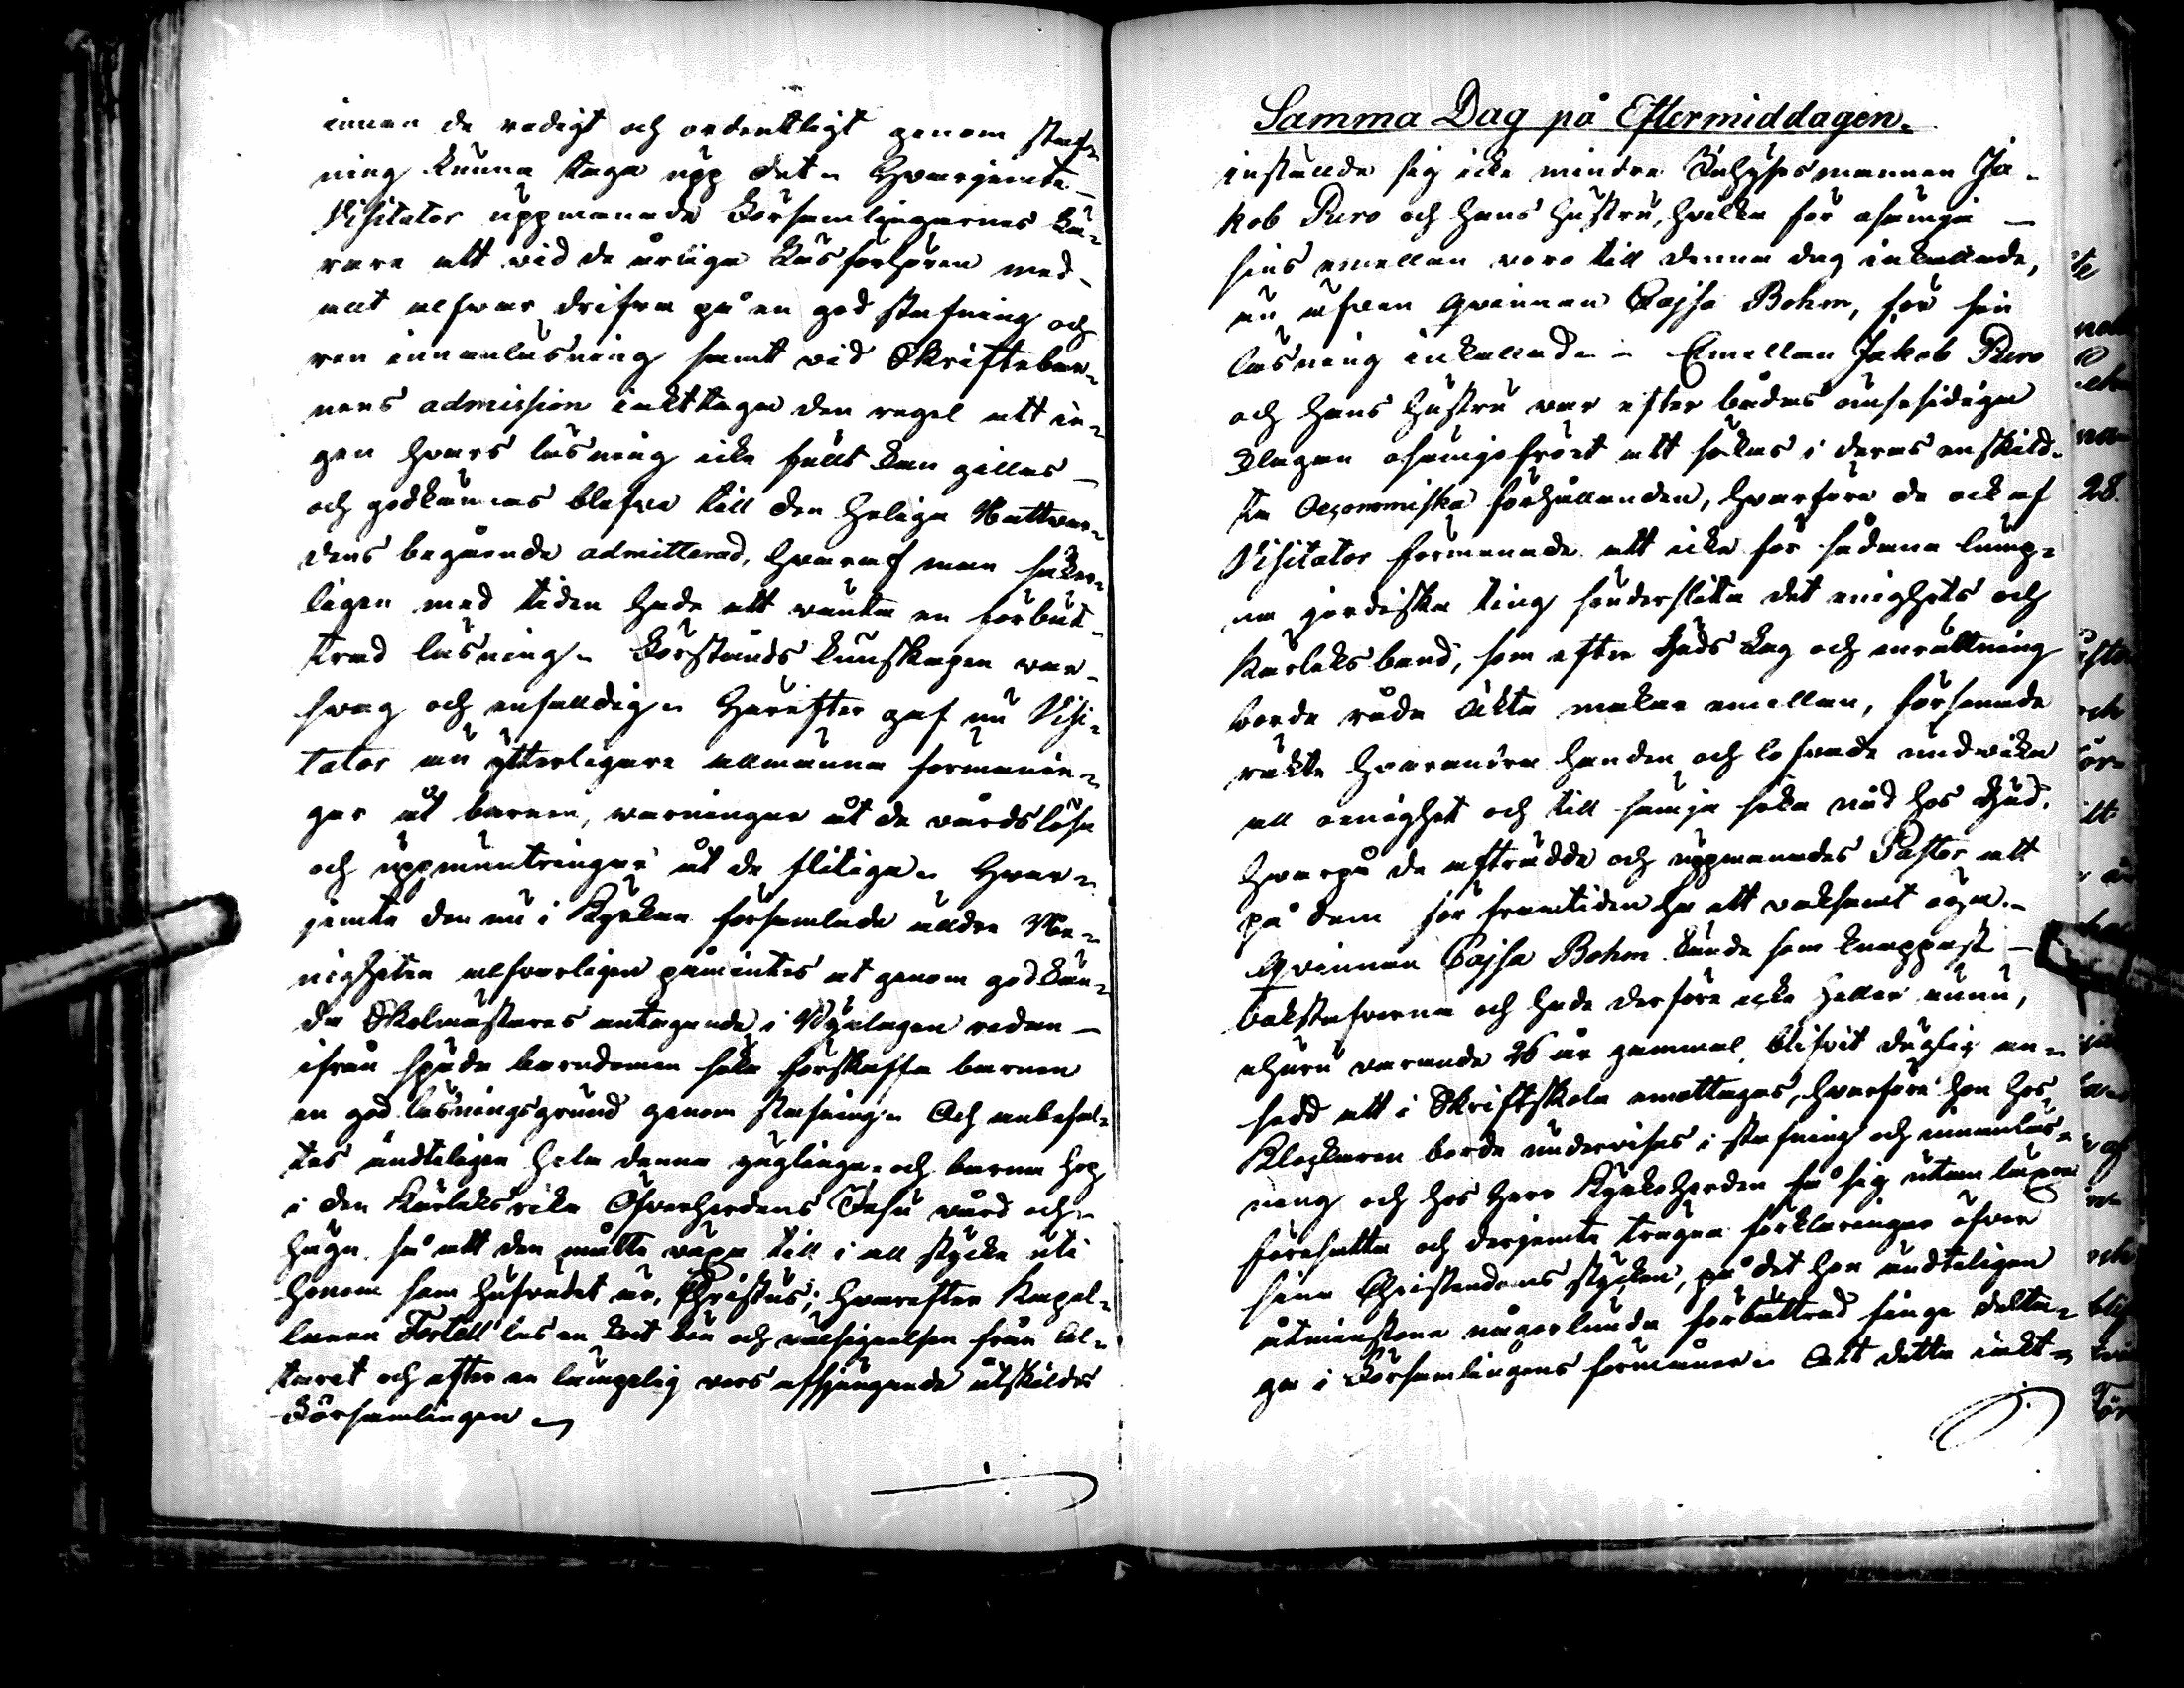 innan de redigt och ordentligt genom staf-
ning kunna taga upp det. Hvarjemte
Visitator uppmanade Församlingarnes Lä-
rare att vid de årliga Läsförhören med
allt alfwar drifva på en god stafning och
ren innanläsning samt vid Skriftebar-
nens admission iakttaga den regel att in-
gen hvars läsning icke fullt kan gillas
och godkännas blefve till den Heliga Nattvar-
dens begående admitterad, hvaraf man säker-
ligen med tiden hade att vänta en förbät-
trad läsning. Förstånds kunskapen var
svag och enfaldig. Härefter gaf nu Visi-
tator än ytterligare allmänna förmanin-
gar åt barnen, varningar åt de vårdslösa
och uppmuntringar åt de flitiga. Hvar-
jemte den nu i Kyrkan församlade äldre Me-
nigheten alfvarligen påmintes at genom godkän-
da Skolmästares antagande i Byalagen redan
ifrån späda barndomen söka förskaffa barnen
en god läsningsgrund genom stafning. Och anbefal-
tes ändteligen hela denna ynglinga- och barna hop
i den Kärleksrika Öfverherdens Jesu vård och
hägn så att den måtte växa till i all stycke uti
honom som hufvudet är, Christus; hvarefter Kapel-
lanen Forsell las en kort bön och välsignelsen från Al-
taret och efter en lämpelig vers afsjungande åtskildes
Församlingen
Samma Dag på Eftermiddagen.
inställde sig icke mindre Inhysesmannen Ja-
kob Puro och hans hustru, hvilka för osämja
sins emellan voro till denna dag inkallade,
än äfven Qvinnan Cajsa Bohm, för sin
läsning inkallad. Emellan Jakob Puro
och hans hustru var efter bådas ömsesidiga
klagan osämjefröet att sökas i deras enskild-
ta Oeconomiska förhållanden, hvarföre de ock af
Visitator förmanade att icke för sådana lump-
na jordiska ting sönderslita det enighets och
Kärleks band, som efter Guds Lag och inrättning
borde råda äkta makar emellan, försonade
räkte hvarandra handen och lofvade undvika
all oenighet och till sämja söka nåd hos Gud.
Hvarpå de afträdde och uppmanades Pastor att
på dem för framtiden ha ett vaksamt öga.
Qvinnan Cajsa Bohm kunde som knappast
bokstafverna och hade derföre icke heller ännu,
ehuru varande 26 år gammal, blifvit duglig an-
sedd att i Skriftskola emottagas, hvarföre hon hos
Klockaren borde undervisas i stafning och innanläs-
ning och hos Herr Kyrkoherden få sig utan läxor
föresatta och derjemte trägna förklaringar öfver
sina Christendoms stycken, på det hon ändteligen
åtminstone någorlunda förbättrad finge delta-
ga i Församlingens förmåner. Att detta iakt-